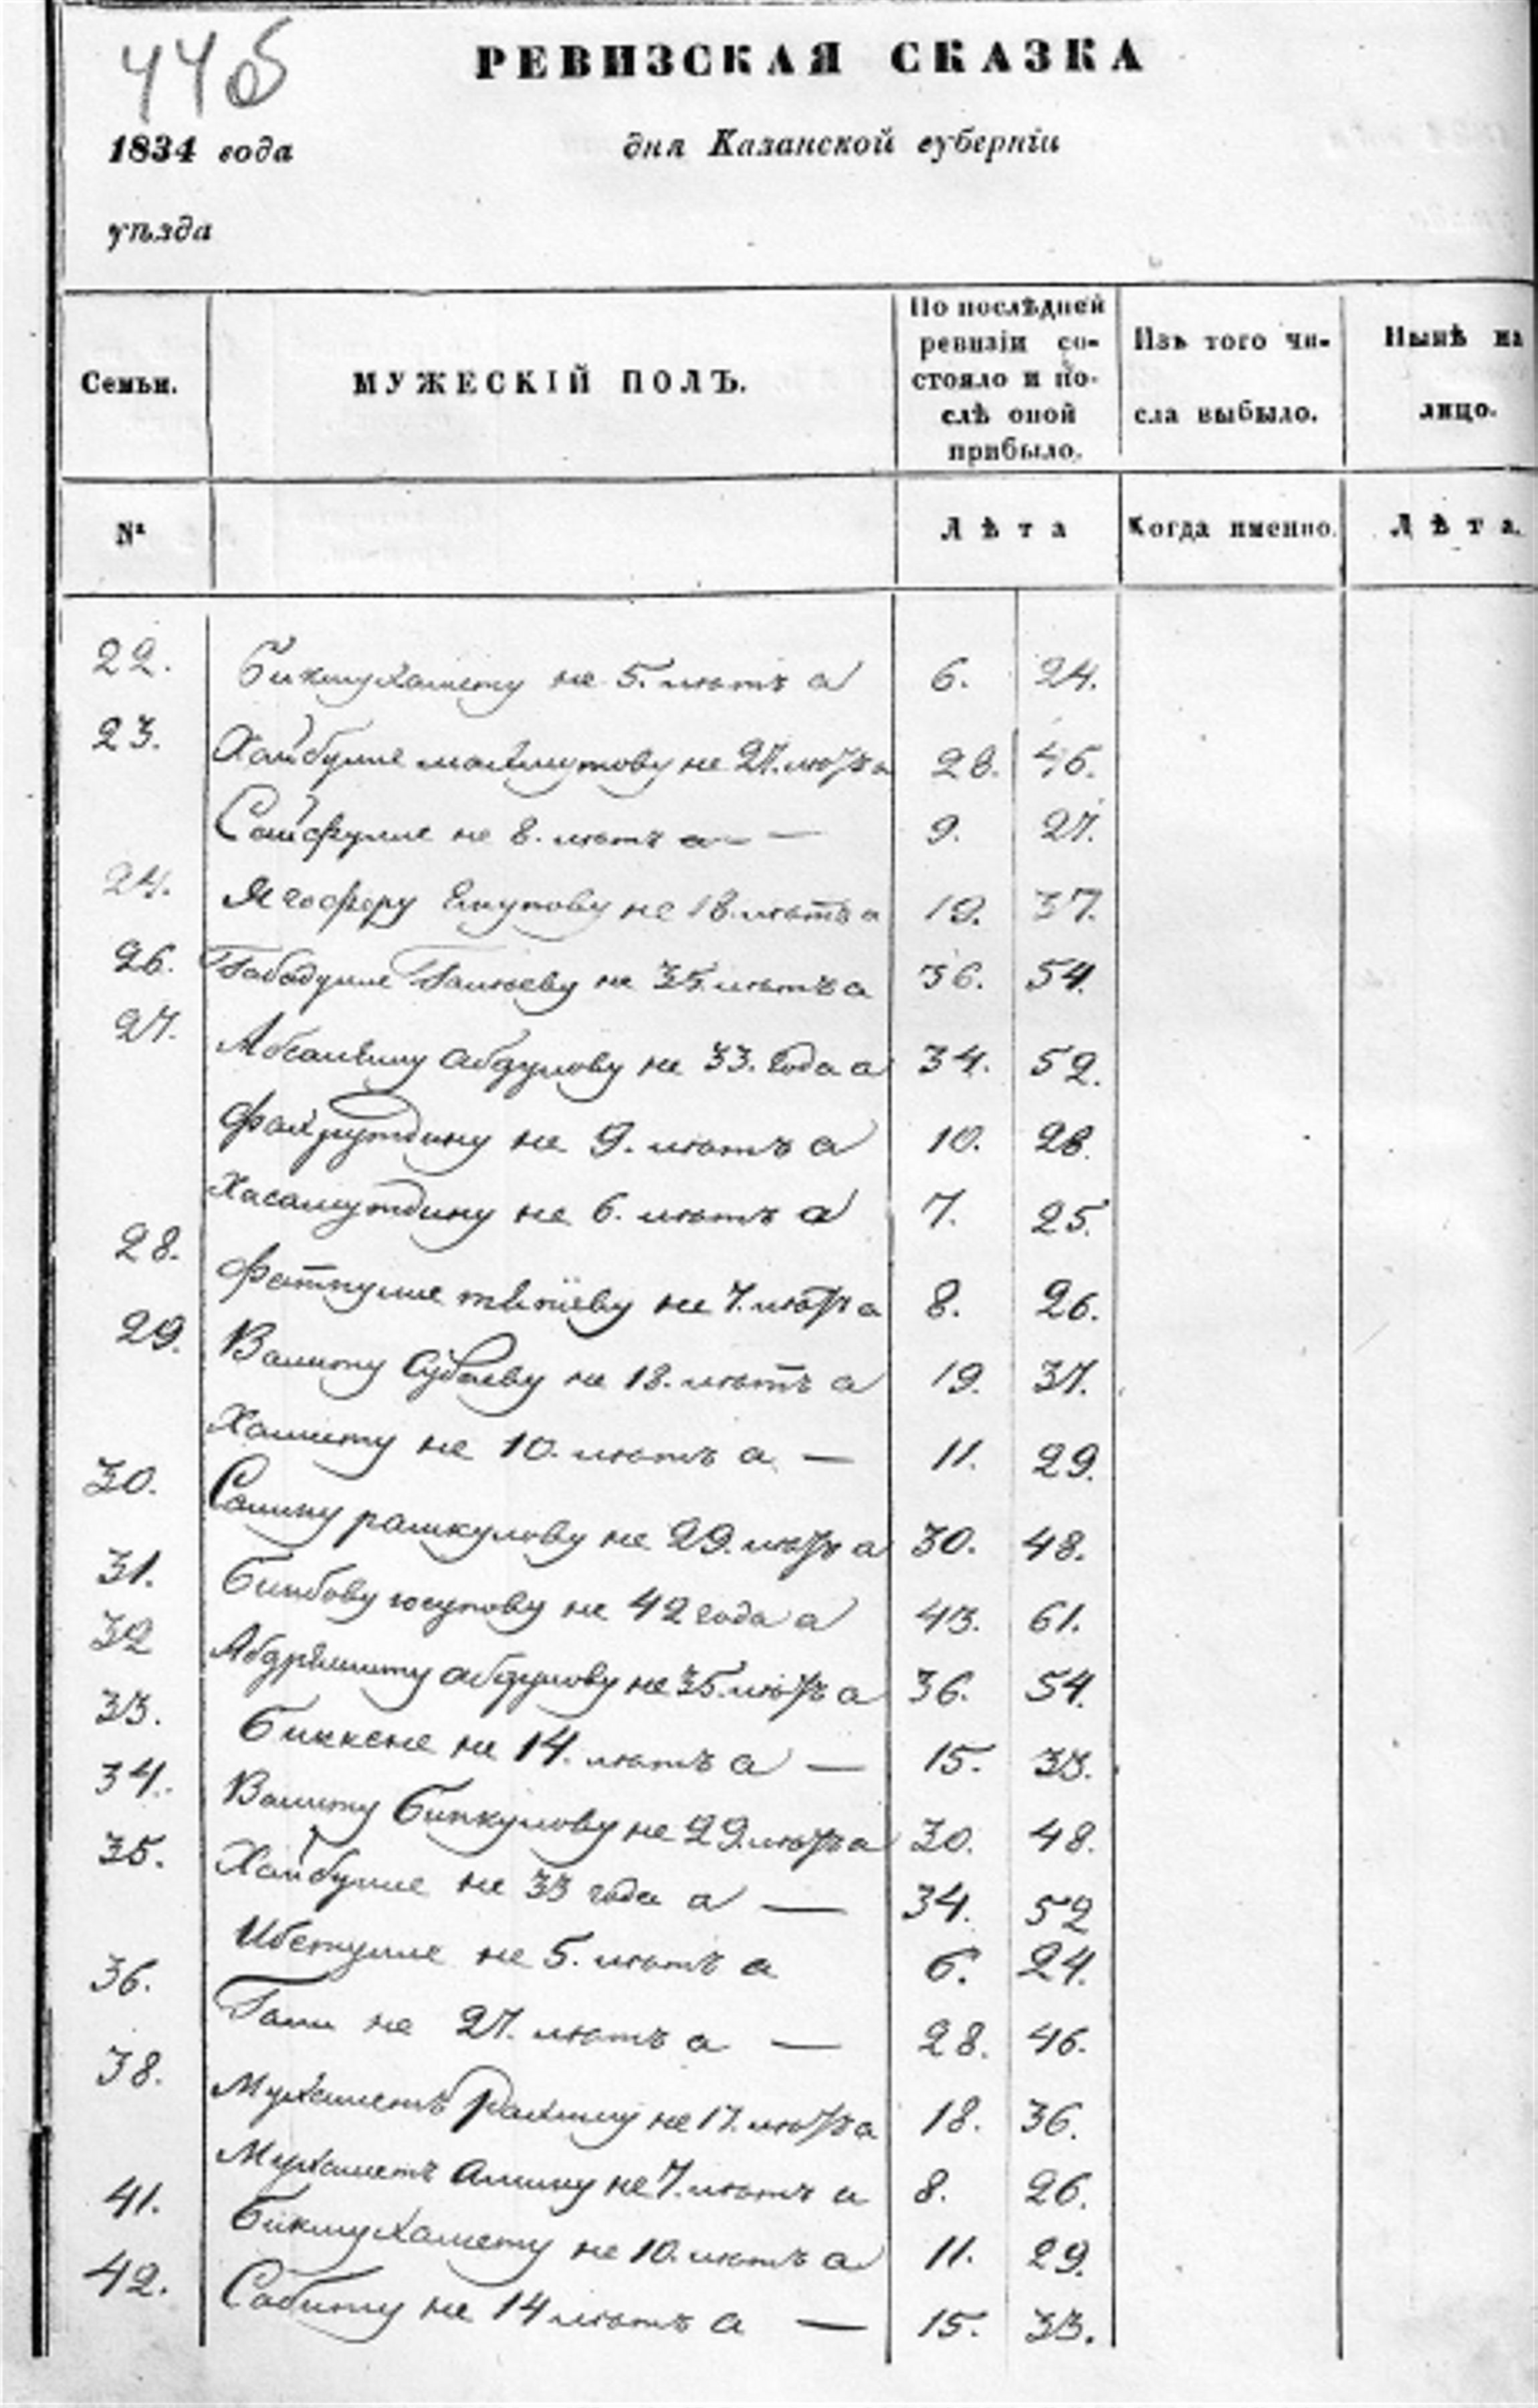 44об
РЕВИЗСКАЯ СКАЗКА
1834 года дня Казанской губерніи
уѣзда
Семьи. МУЖЕСКІЙ ПОЛЪ. По послѣдней ревизіи состояло и послѣ оной прибыло. Изъ того числа выбыло. Нынѣ на лицо.
№ Лѣта Когда именно. Лѣта.
22. Бикмухамету не 5. лѣтъ а 6. 24.
23. Хайбулле махмутову не 27. лѣтъ а 28. 46.
Сайфулле не 8. лѣтъ а — 9. 27.
24. Ягоферу не 18. лѣтъ а 19. 37.
26. Габадулле Галиеву не 35. лѣтъ а 36. 54.
27. Абсаляму абдулову не 33. года а 34. 52.
Фахрутдину не 9. лѣтъ а 10. 28.
Хасамутдину не 6. лѣтъ а 7. 25.
28. Фаткулле не 7. лѣтъ а 8. 26.
29. Валиту Субаеву не 18. лѣтъ а 19. 37.
Хамиту не 10. лѣтъ а — 11. 29.
30. рашкулову не 29. лѣтъ а 30. 48.
31. юсупову не 42 года а 43. 61.
32 Абдряшиту абдулову не 35. лѣтъ а 36. 54.
33. Биккене не 14. лѣтъ а — 15. 33.
34. Валиту Бикулову не 29. лѣтъ а 30. 48.
35. Хайбулле не 33 года а — 34. 52
Ибетулле не 5. лѣтъ а 6. 24.
36. Гали не 27. лѣтъ а — 28. 46.
38. Мухаметъ Рахиму не 17. лѣтъ а 18. 36.
Мухаметъ амину не 7. лѣтъ а 8. 26.
41. Бикмухамету не 10. лѣтъ а 11. 29.
42. Сабиту не 14 лѣтъ а — 15. 33.